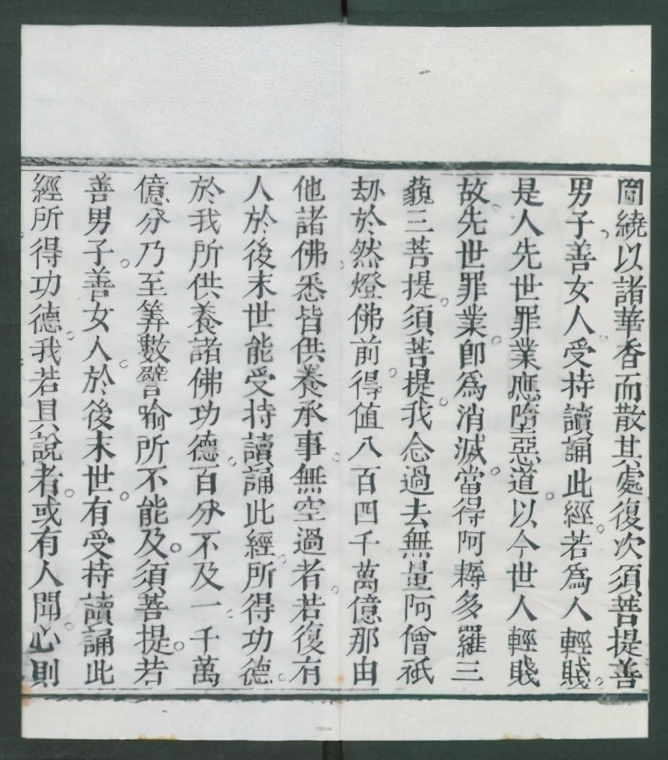 圍繞以諸華香而散其處復次須菩提善
男子善女人受持讀誦此經若為人輕賤
是人先世罪業應墮惡道以今世人輕賤
故先世罪業卽為消滅當得阿耨多羅三
藐三菩提須菩提我念過去無量阿僧祇
劫於然燈佛前得值八百四千萬億那由
他諸佛悉皆供養承事無空過者若復有
人於後末世能受持讀誦此經所得功德
於我所供養諸佛功德百分不及一千萬
億分乃至筭數譬喻所不能及須菩提若
善男子善女人於後末世有受持讀誦此
經所得功德我若具說者或有人聞心則